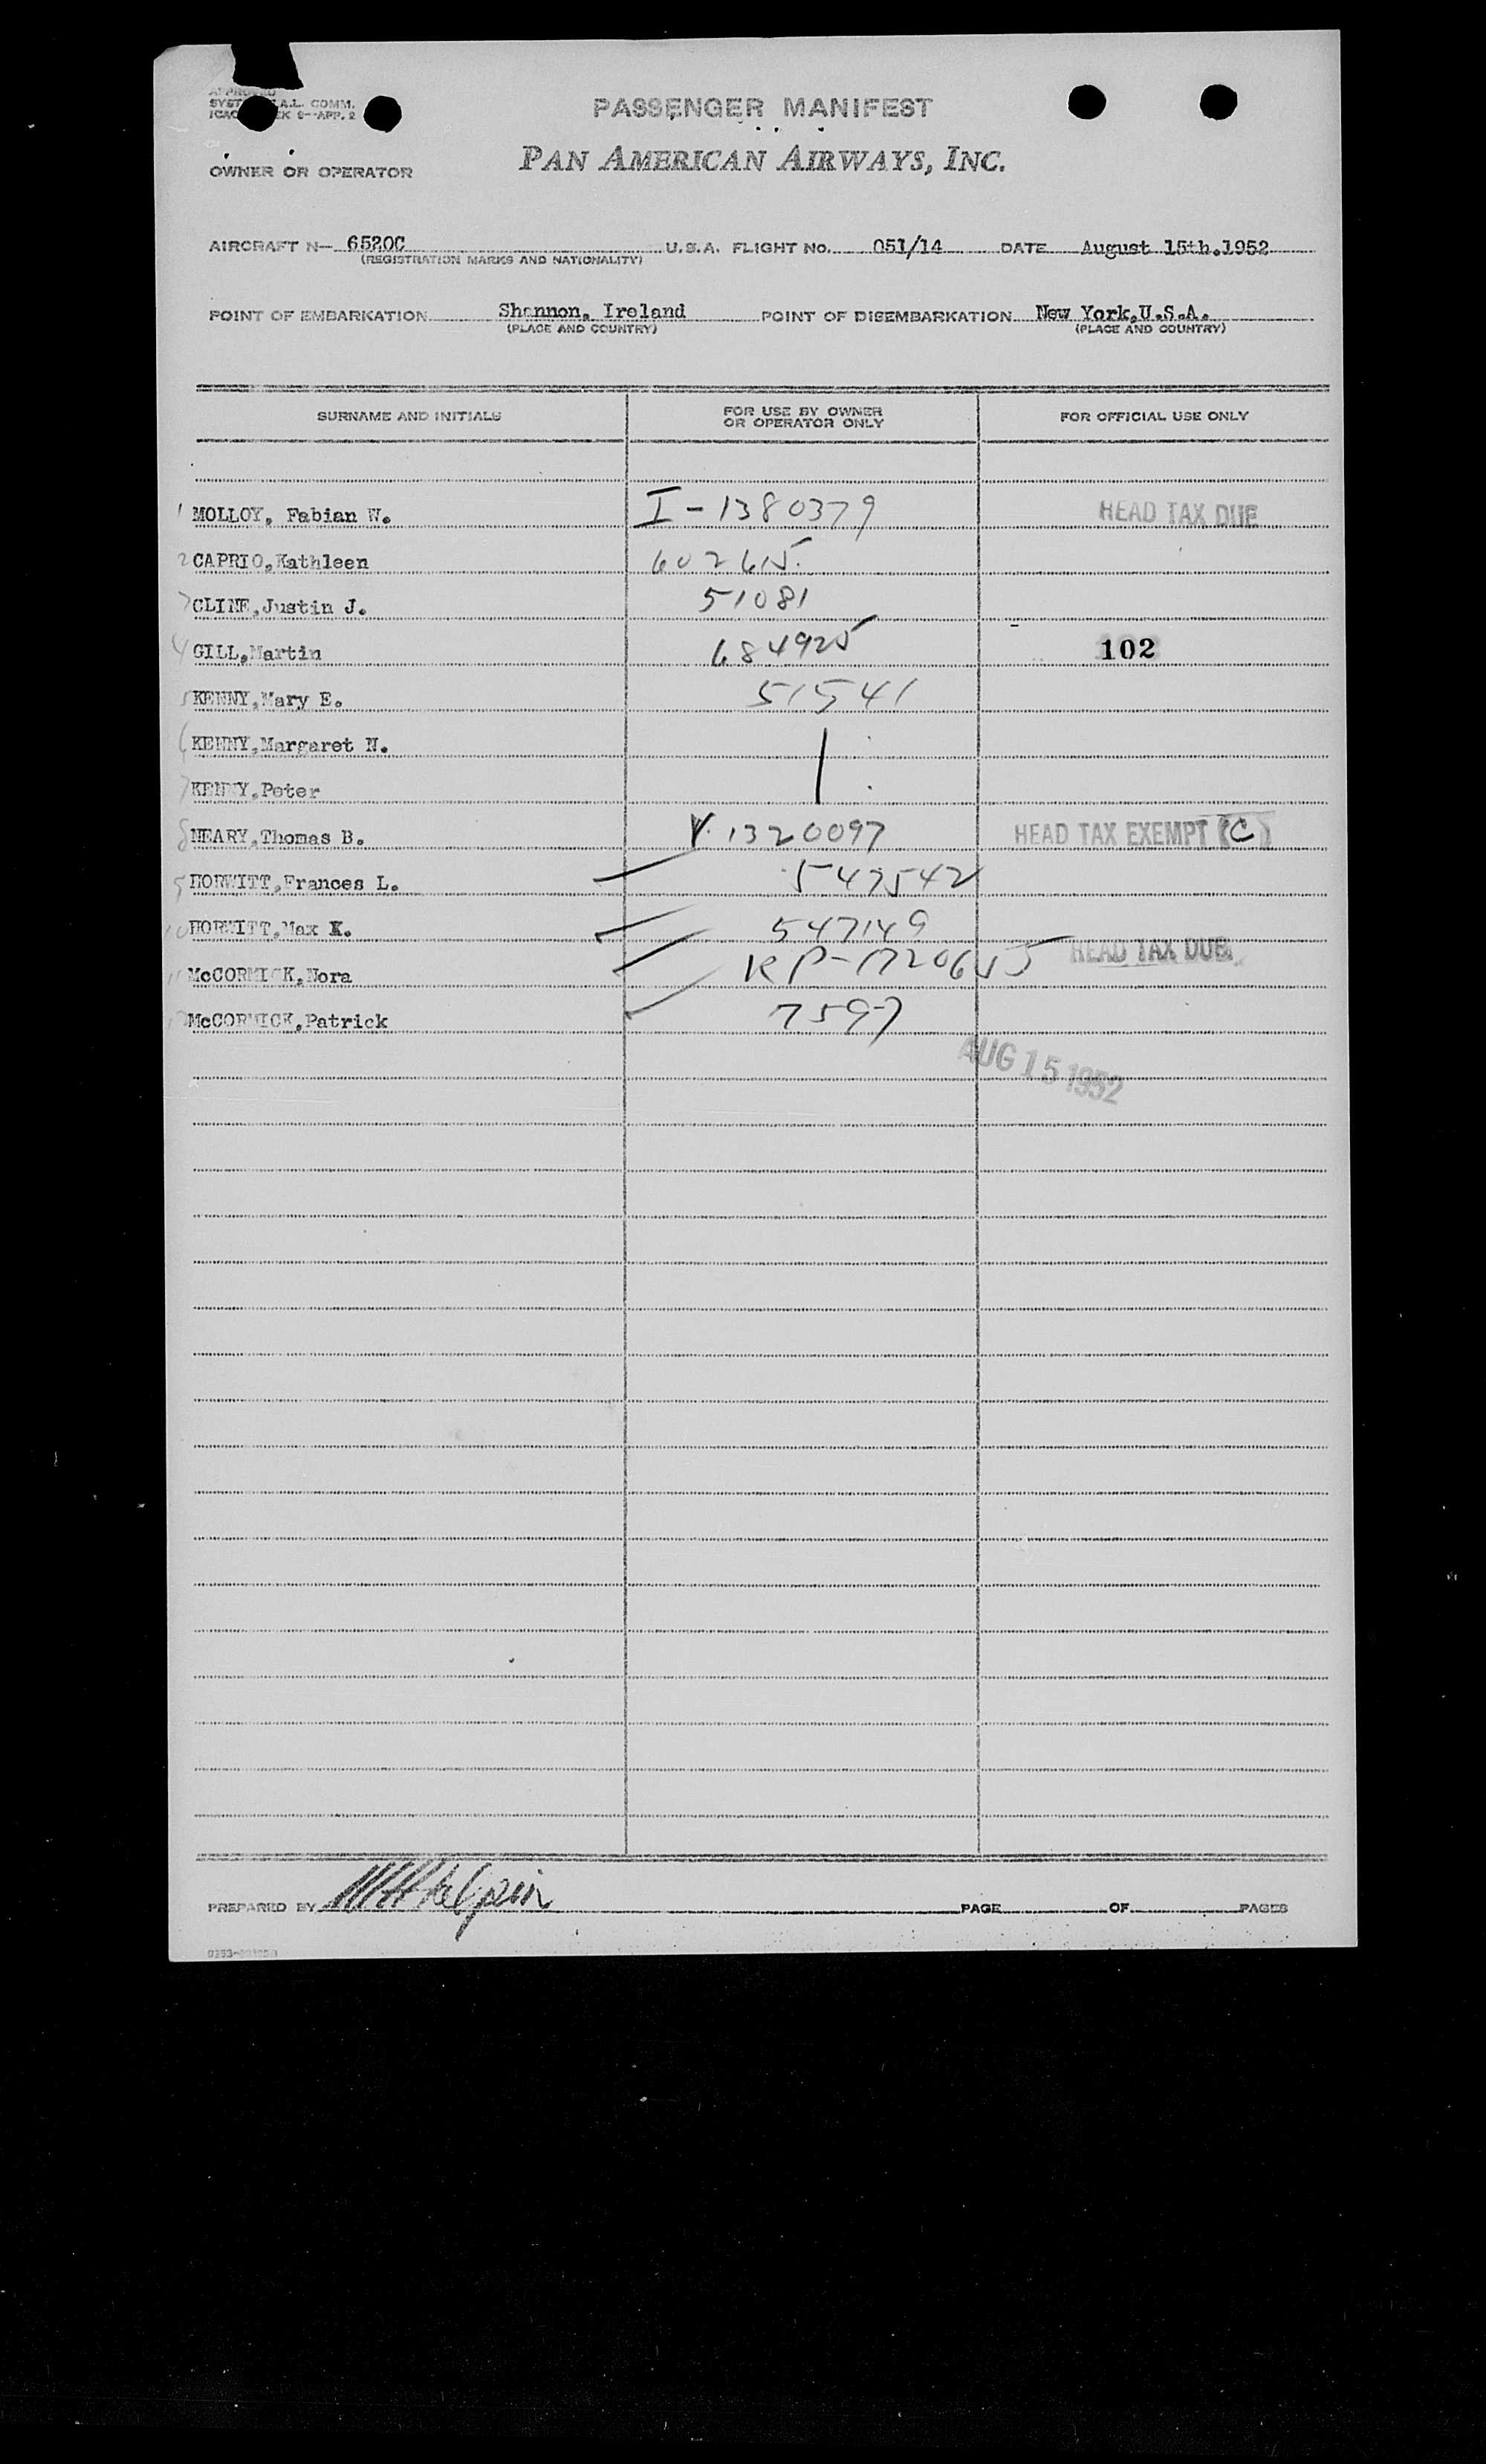 APPROVED
SYST A.L. COMM.
ICAO EX 9-APP. 2
PASSENGER MANIFEST
OWNER OR OPERATOR PAN AMERICAN AIRWAYS, INC.
AIRCRAFT N- 6520C U.S.A. FLIGHT NO. 051/14 DATE August 15th.1952
(REGISTRATION MARKS AND NATIONALITY)
POINT OF EMBARKATION Shannon, Ireland POINT OF DISEMBARKATION New York,U.S.A.
(PLACE AND COUNTRY) (PLACE AND COUNTRY)
SURNAME AND INITIALS FOR USE BY OWNER OR OPERATOR ONLY FOR OFFICIAL USE ONLY
1 MOLLOY, Fabian W. I-1380379 HEAD TAX DUE
2 CAPRIO,Kathleen 602615.
CLINE,Justin J. 51081
4 GILL,Martin 684925 102
5 KENNY,Mary E. 51541
6 KENNY,Margaret N.
7 KENNY,Peter
8 NEARY,Thomas B. V. 1320097 HEAD TAX EXEMPT (C)
HORWITT,Frances L. 547542
10 HORWITT,Max K. 547149
11 McCORMICK,Nora HEAD TAX DUE
McCORMICK,Patrick 7597
AUG 15 1952
PREPARED BY PAGE OF PAGES